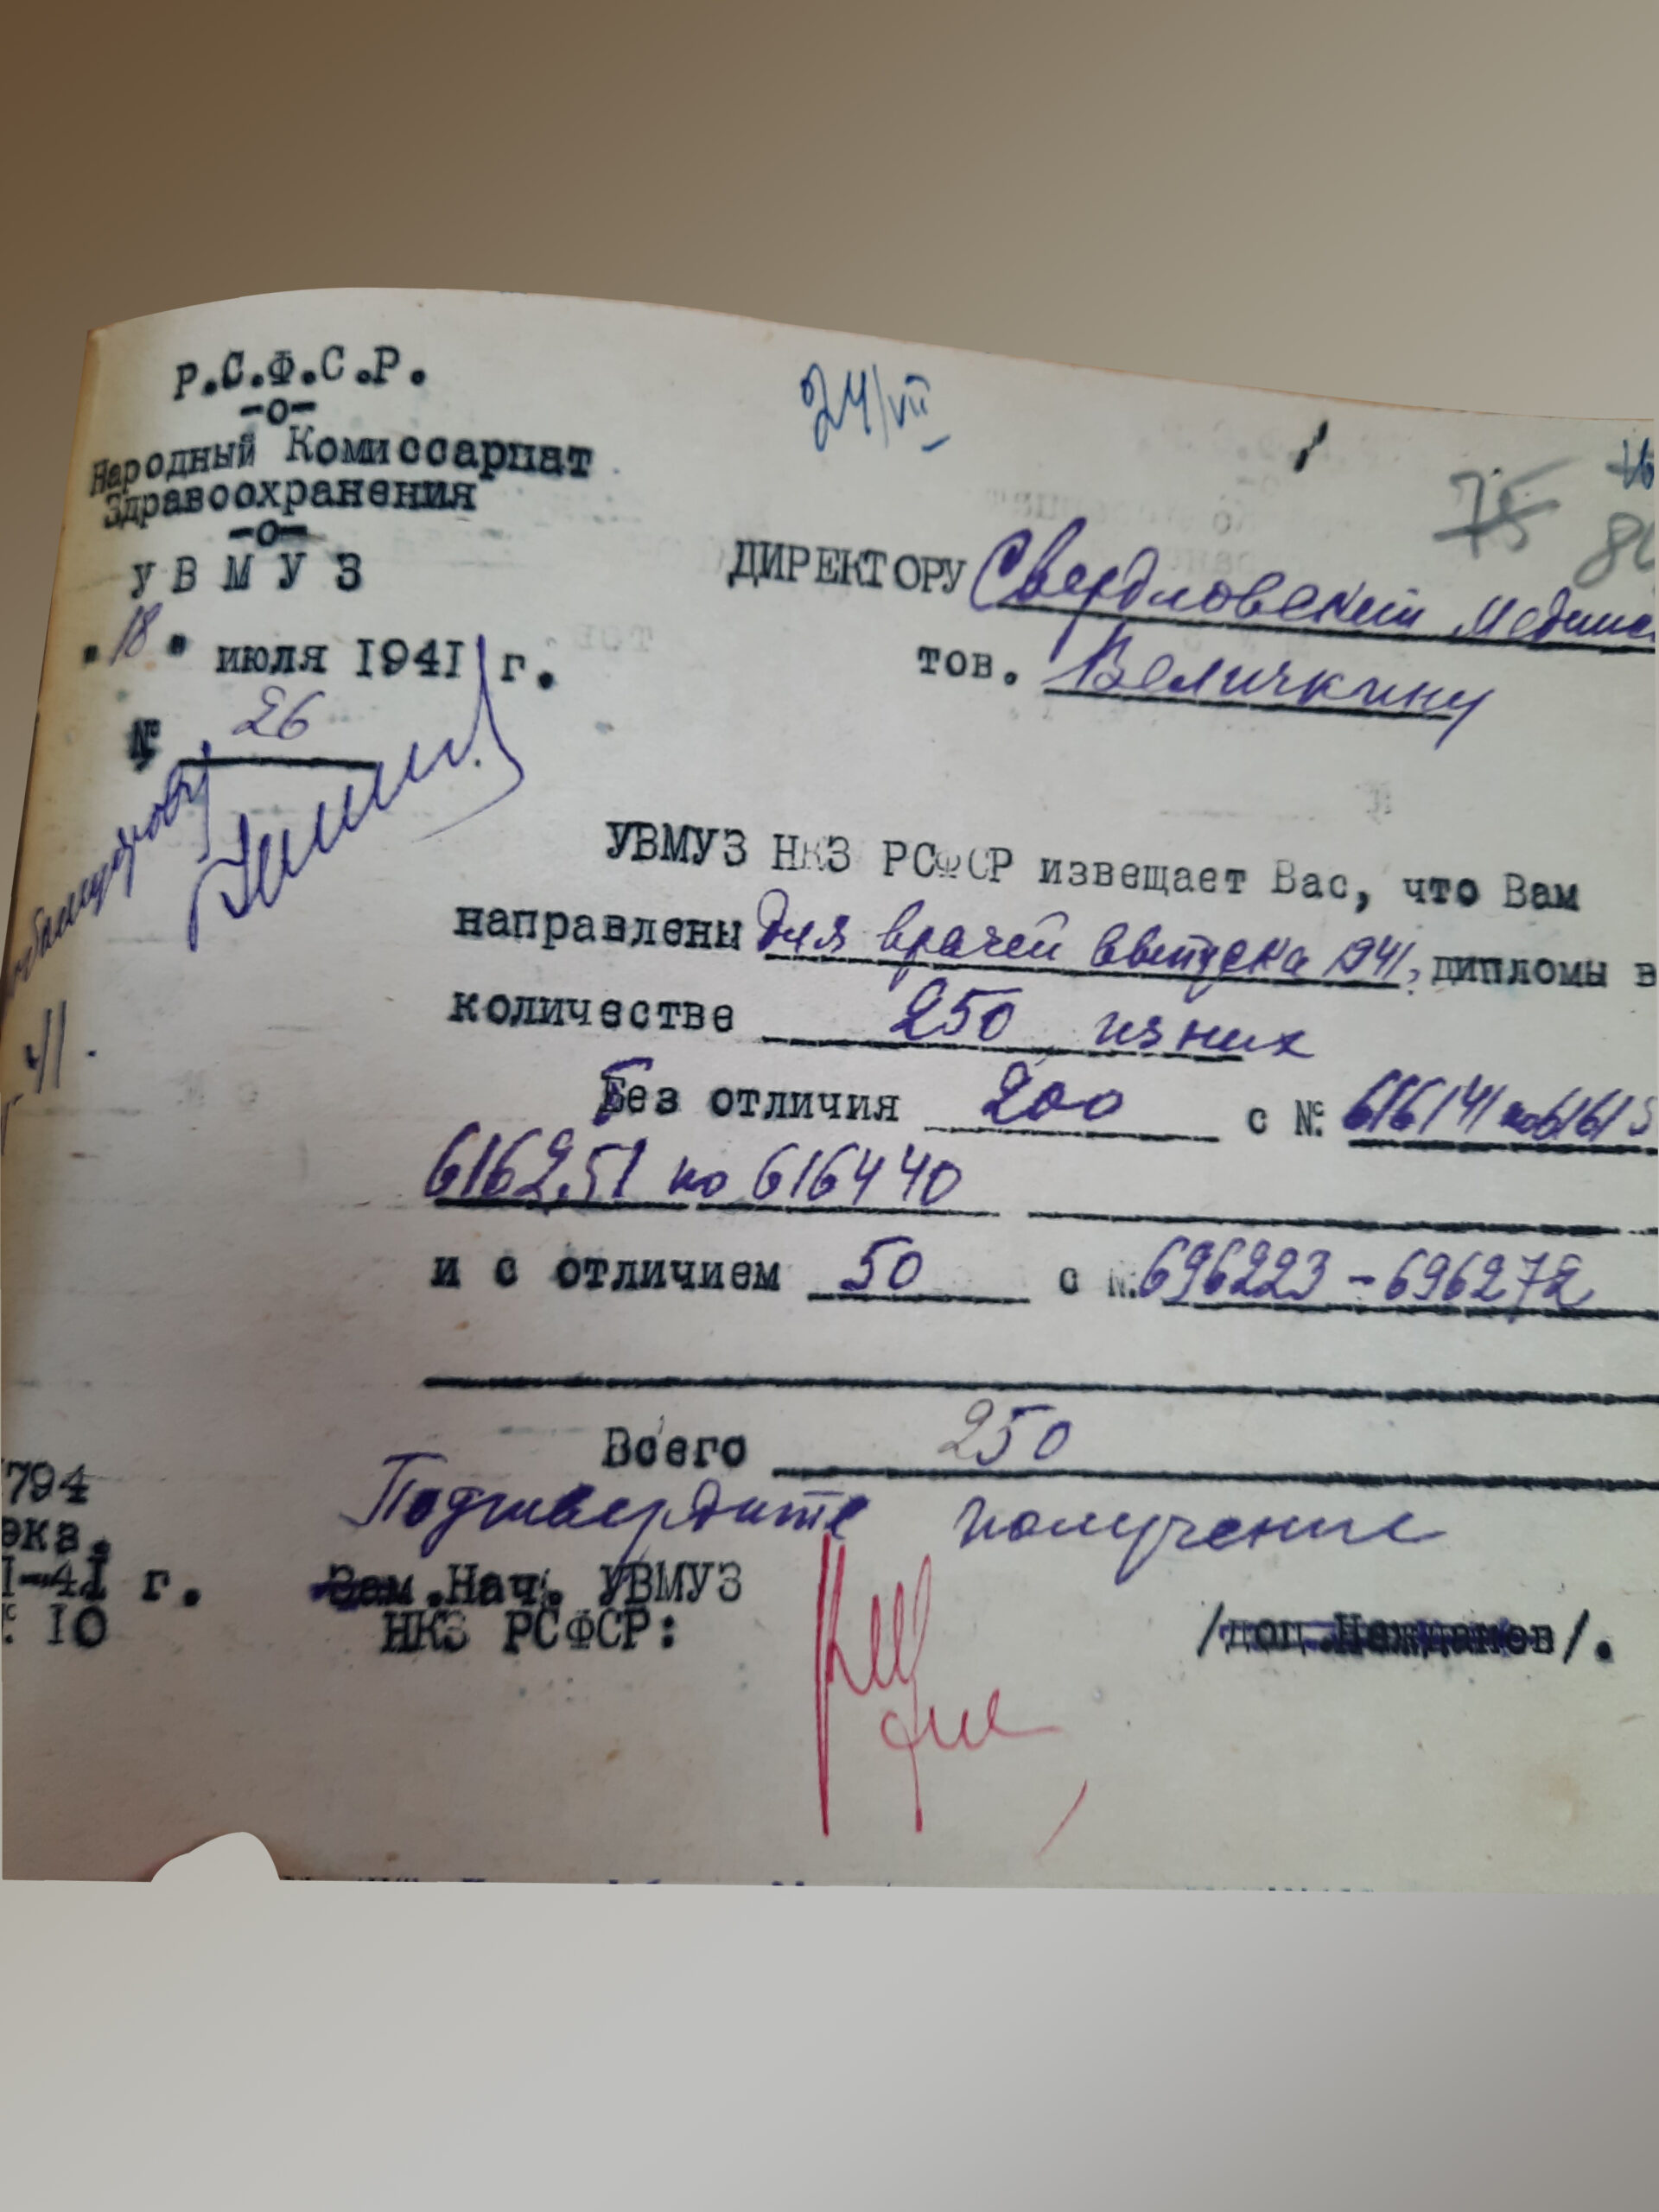 Р.С.Ф.С.Р.
-о-
Народный Комиссариат
Здравоохранения
-о-
У В М У З
"18" июля 1941 г.
№ 26
24/VII
75
ДИРЕКТОРУ Свердловский
тов. Величкину
УВМУЗ НКЗ РСФСР извещает Вас, что Вам
направлены для врачей выпуска 1941, дипломы в
количестве 250 из них
Без отличия 200 с № 616141 по
616251 по 616440
и с отличием 50 с № 696223 - 696272
Всего 250
Подтвердите получение
Зам.Нач. УВМУЗ
НКЗ РСФСР:
/доц.Нежданов/.
794
экз.
I-41 г.
10